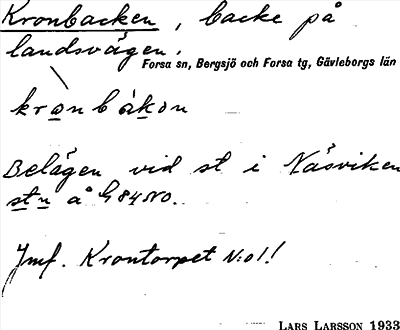 Kronbacken, backe på
landsvägen.
Forsa sn, Bergsjö och Forsa tg, Gävleborgs län
krọnbákọn
Belägen vid st i Näsviken
stn å G84NO.
Jmf. Krontorpet N:o1!
LARS LARSSON 1933